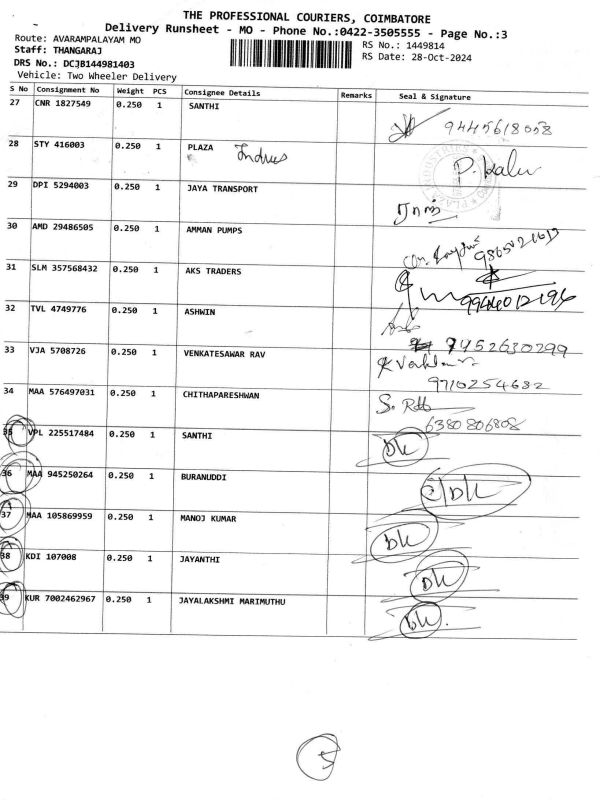 THE PROFESSIONAL COURIERS, COIMBATORE
Delivery Runsheet - MO - Phone No.:0422-3505555 - Page No.:3
Route: AVARAMPALAYAM MO RS No.: 1449814
Staff: THANGARAJ RS Date: 28-Oct-2024
DRS No.: DCJB144981403
Vehicle: Two Wheeler Delivery
S No Consignment No Weight PCS Consignee Details Remarks Seal & Signature
27 CNR 1827549 0.250 1 SANTHI
9445618058
28 STY 416003 0.250 1 PLAZA Indus
D. Kalu
29 DPI 5294003 0.250 1 JAYA TRANSPORT
30 AMD 29486505 0.250 1 AMMAN PUMPS
31 SLM 357568432 0.250 1 AKS TRADERS
9944012194
32 TVL 4749776 0.250 1 ASHWIN
7452630299
33 VJA 5708726 0.250 1 VENKATESAWAR RAV
9710254632
34 MAA 576497031 0.250 1 CHITHAPARESHWAN
6380806808
35 VPL 225517484 0.250 1 SANTHI DK
36 MAA 945250264 0.250 1 BURANUDDI DK
37 MAA 105869959 0.250 1 MANOJ KUMAR DK
38 KDI 107008 0.250 1 JAYANTHI DK
39 KUR 7002462967 0.250 1 JAYALAKSHMI MARIMUTHU DK
5